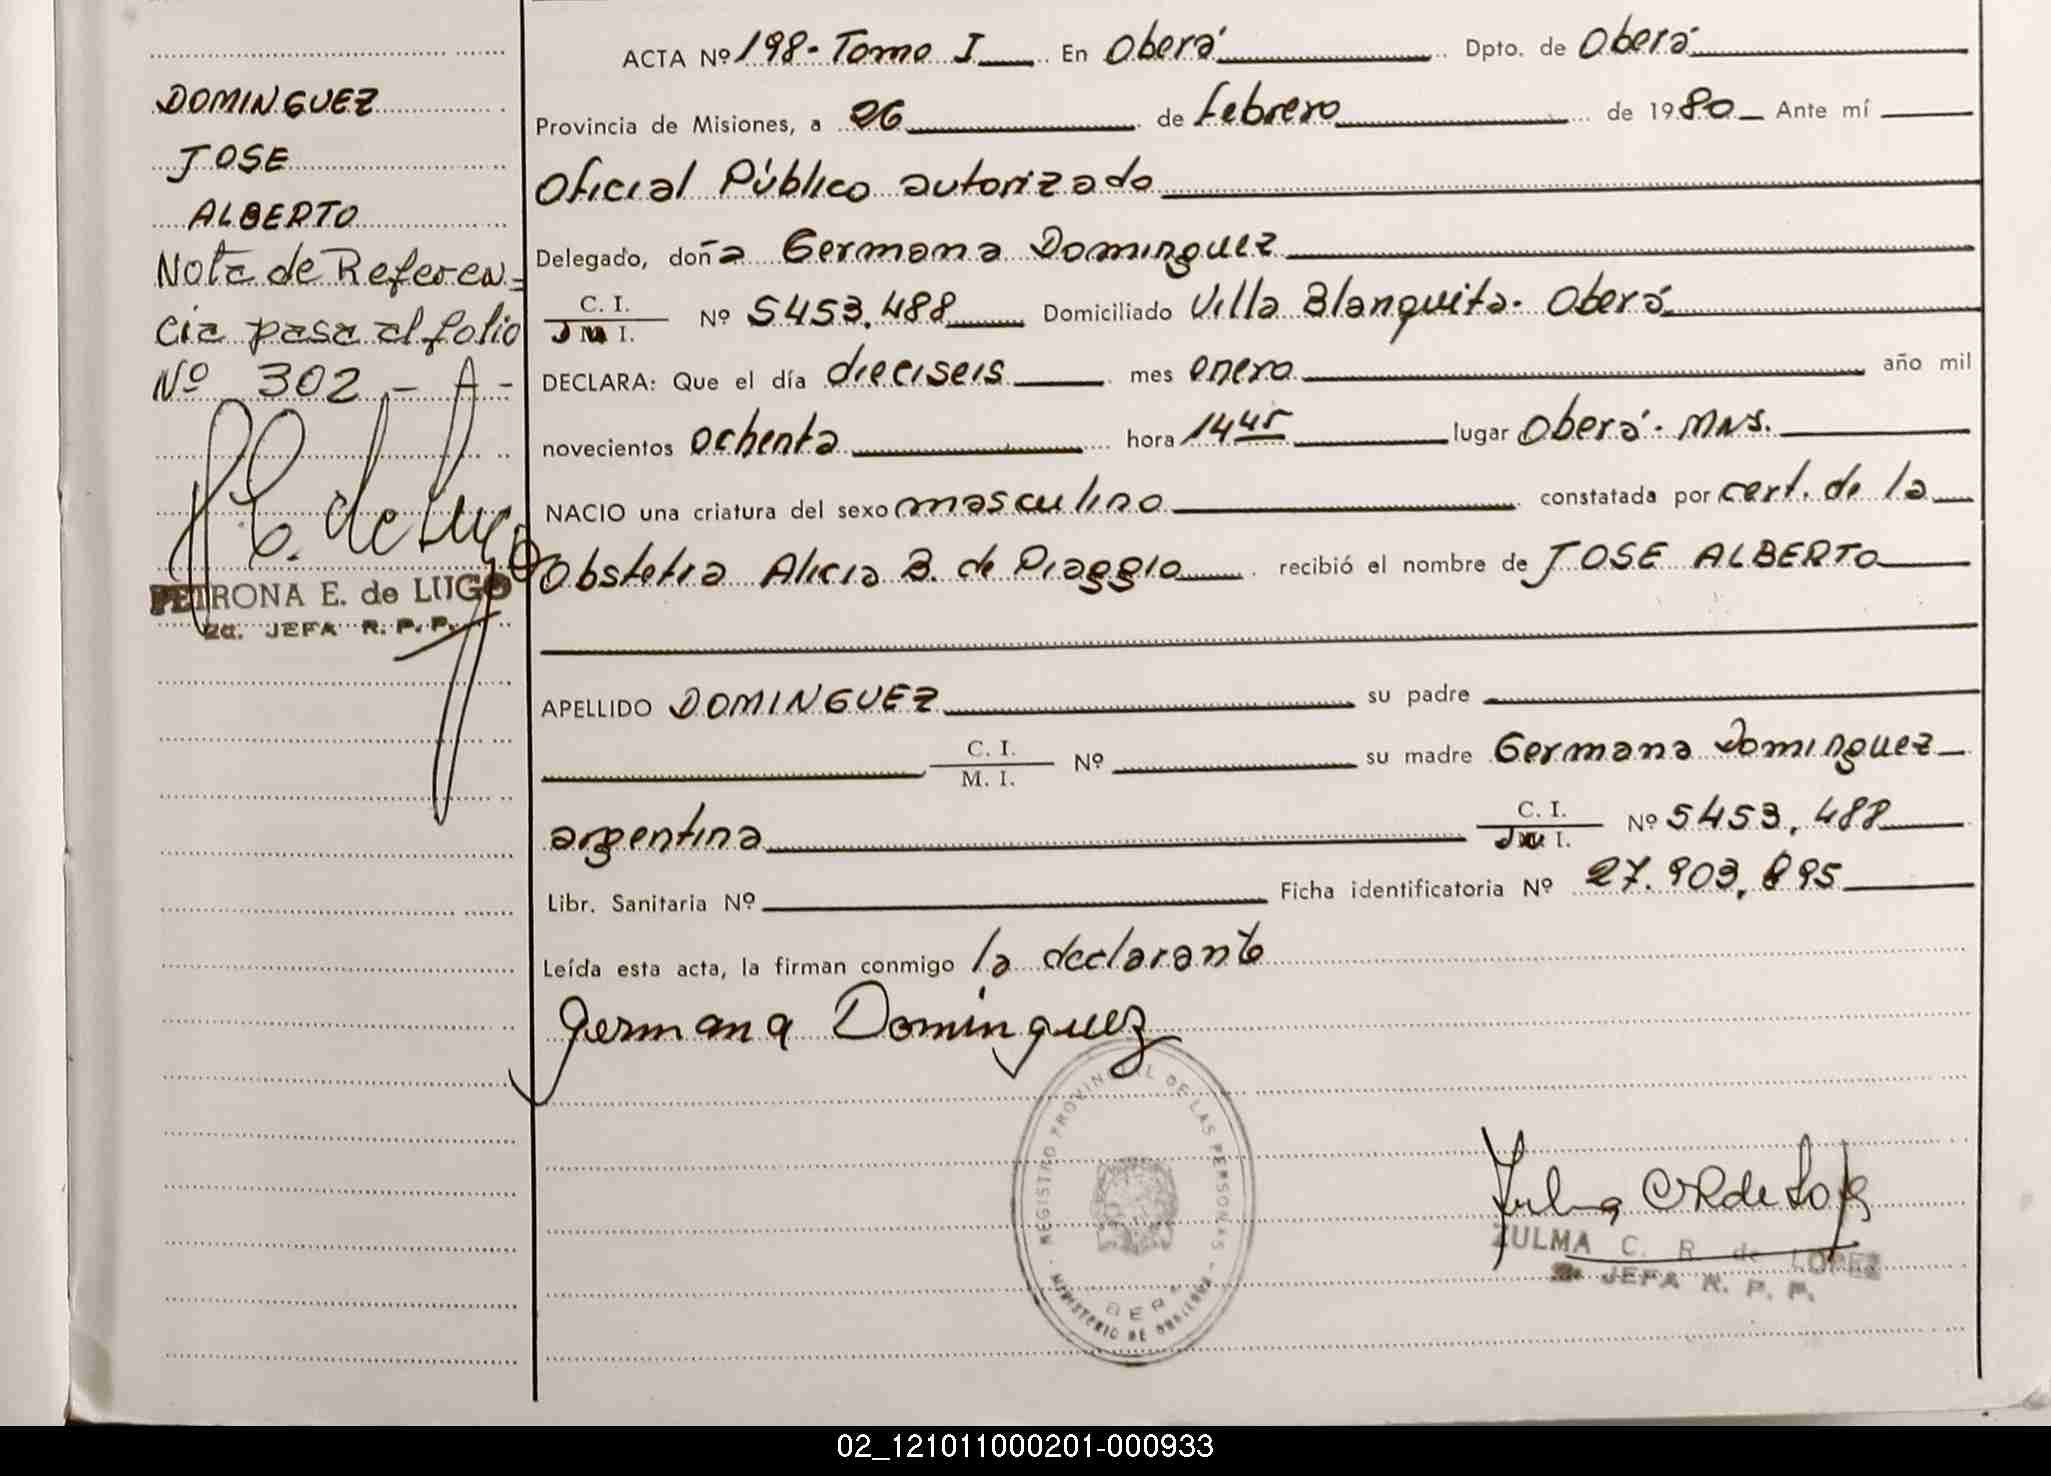 DOMINGUEZ
JOSE
ALBERTO
Nota de Referen=
cia pasa al folio
Nº 302 - A -
PETRONA E. de LUGO
2a. JEFA R. P. P.
ACTA Nº 198- Tomo I En Oberá Dpto. de Oberá
Provincia de Misiones, a 26 de febrero de 1980 Ante mí
Oficial Público autorizado
Delegado, doña Germana Dominguez
C. I.
M. I. Nº 5453.488 Domiciliado Villa Blanquita- Oberá
DECLARA: Que el día dieciseis mes enero año mil
novecientos ochenta hora 1445 lugar Oberá- Mns.
NACIO una criatura del sexo masculino constatada por cert. de la
Obstetra Alicia B. de Piaggio recibió el nombre de JOSE ALBERTO
APELLIDO DOMINGUEZ su padre
C. I.
M. I. Nº su madre Germana Dominguez
argentina C. I. Nº 5453.488
Libr. Sanitaria Nº Ficha identificatoria Nº 27.903.895
Leída esta acta, la firman conmigo la declarante
Germana Dominguez
REGISTRO PROVINCIAL DE LAS PERSONAS
OBERA
MINISTERIO DE GOBIERNO
Zulma C R de López
ZULMA C. R. de LOPEZ
JEFA R. P. P.
02_121011000201-000933